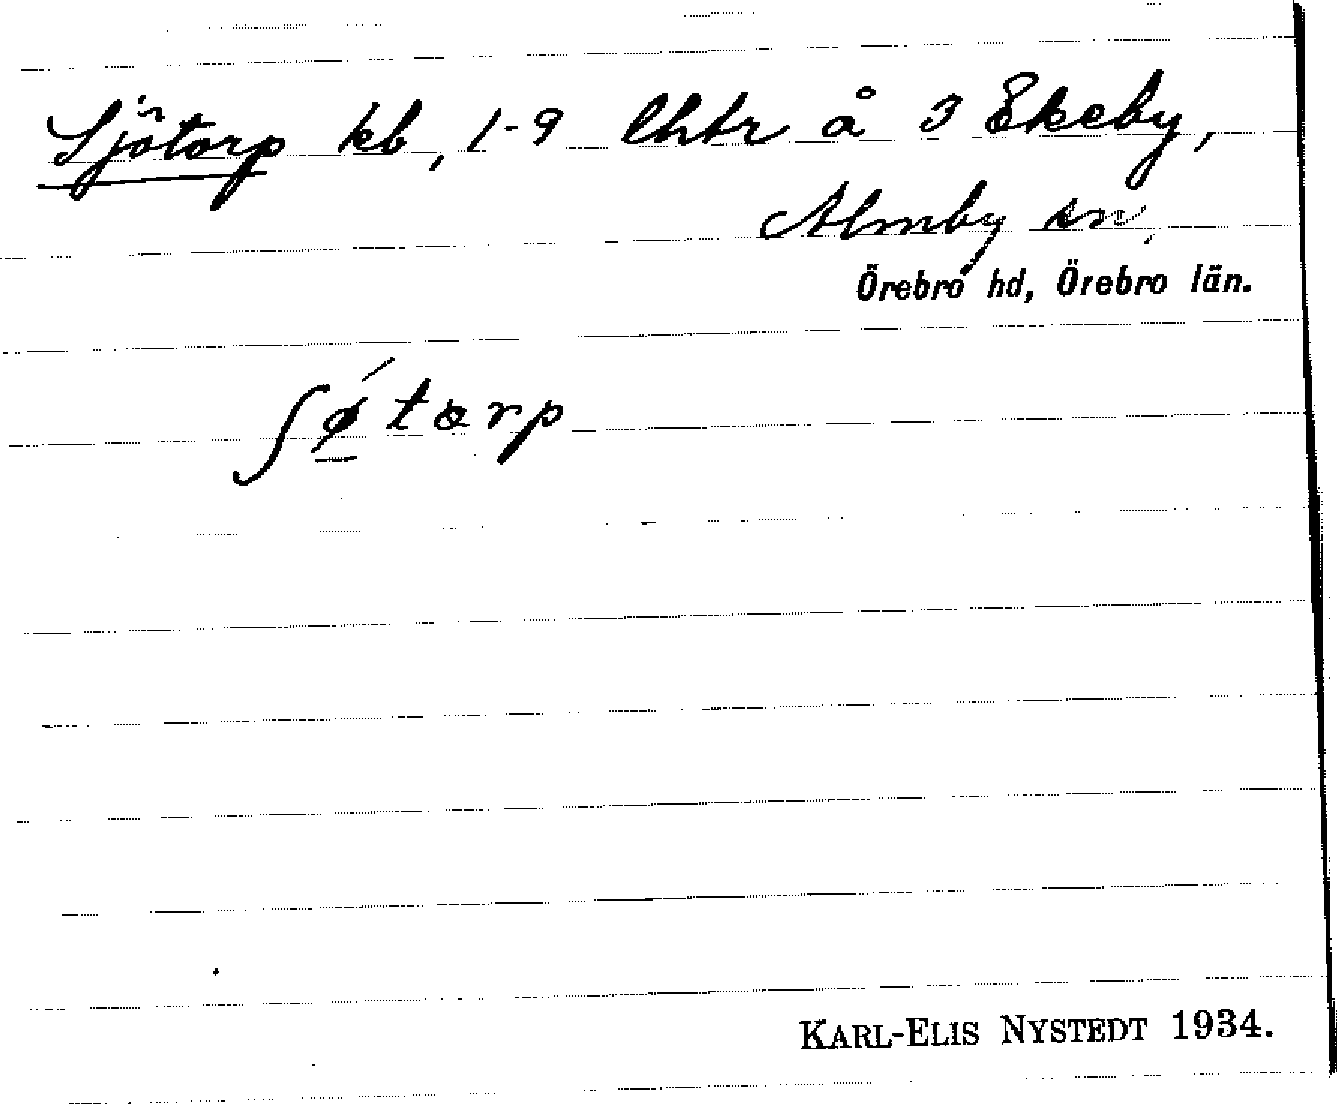 Sjötorp kb, 1-9 lhtr å 3 Ekeby,
Almby sn,
Örebro hd, Örebro län.
ʃǿtarp
KARL-ELIS NYSTEDT 1934.